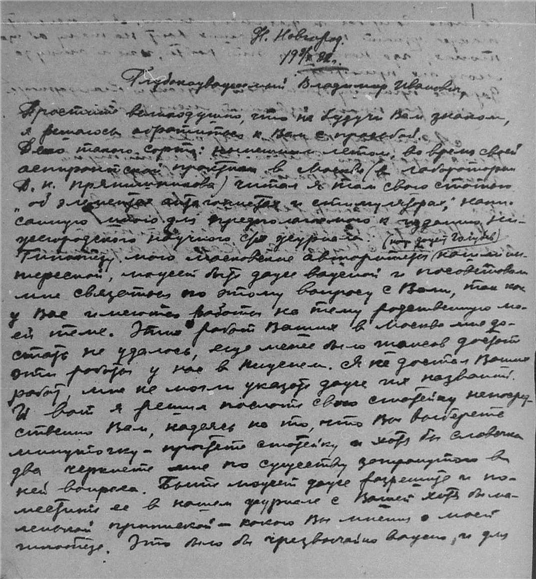 Н. Новгород.
19 32.
Глубокоуважаемый Владимир Иванович,
Простите великодушно, что не будучи Вам знаком,
я решаюсь обратиться к Вам с просьбой.
Дело такого сорта: нынешним летом, во время своей
аспирантской практики в Москве (в лаборатории
Д. Н. Прянишникова) читал я там свою статью
"об элементах антагонистах и стимуляторах", напи-
санную мною для предполагаемого к изданию ни-
жегородского научного журнала
Гипотезу мою московские авторитеты нашли ин-
тересной, может быть даже важной и посоветовали
мне связаться по этому вопросу с Вами, так как
у Вас имеются работы на тему родственную мо-
ей теме. Этих работ Ваших в Москве мне до-
стать не удалось, еще менее было шансов достать
эти работы у нас в Нижнем. Я не достал Ваших
работ, мне не могли указать даже их названий.
И вот я решил послать свою статейку непосред-
ственно Вам, надеясь на то, что Вы выберете
минуточку - прочтете статейку и хотя бы словечка
два черкнете мне по существу затронутого в
ней вопроса. Быть может даже разрешите и по-
местить ее в нашем журнале с Вашей хотя бы ма-
ленькой припиской - какого Вы мнения о моей
гипотезе. Это было бы чрезвычайно важно, и для